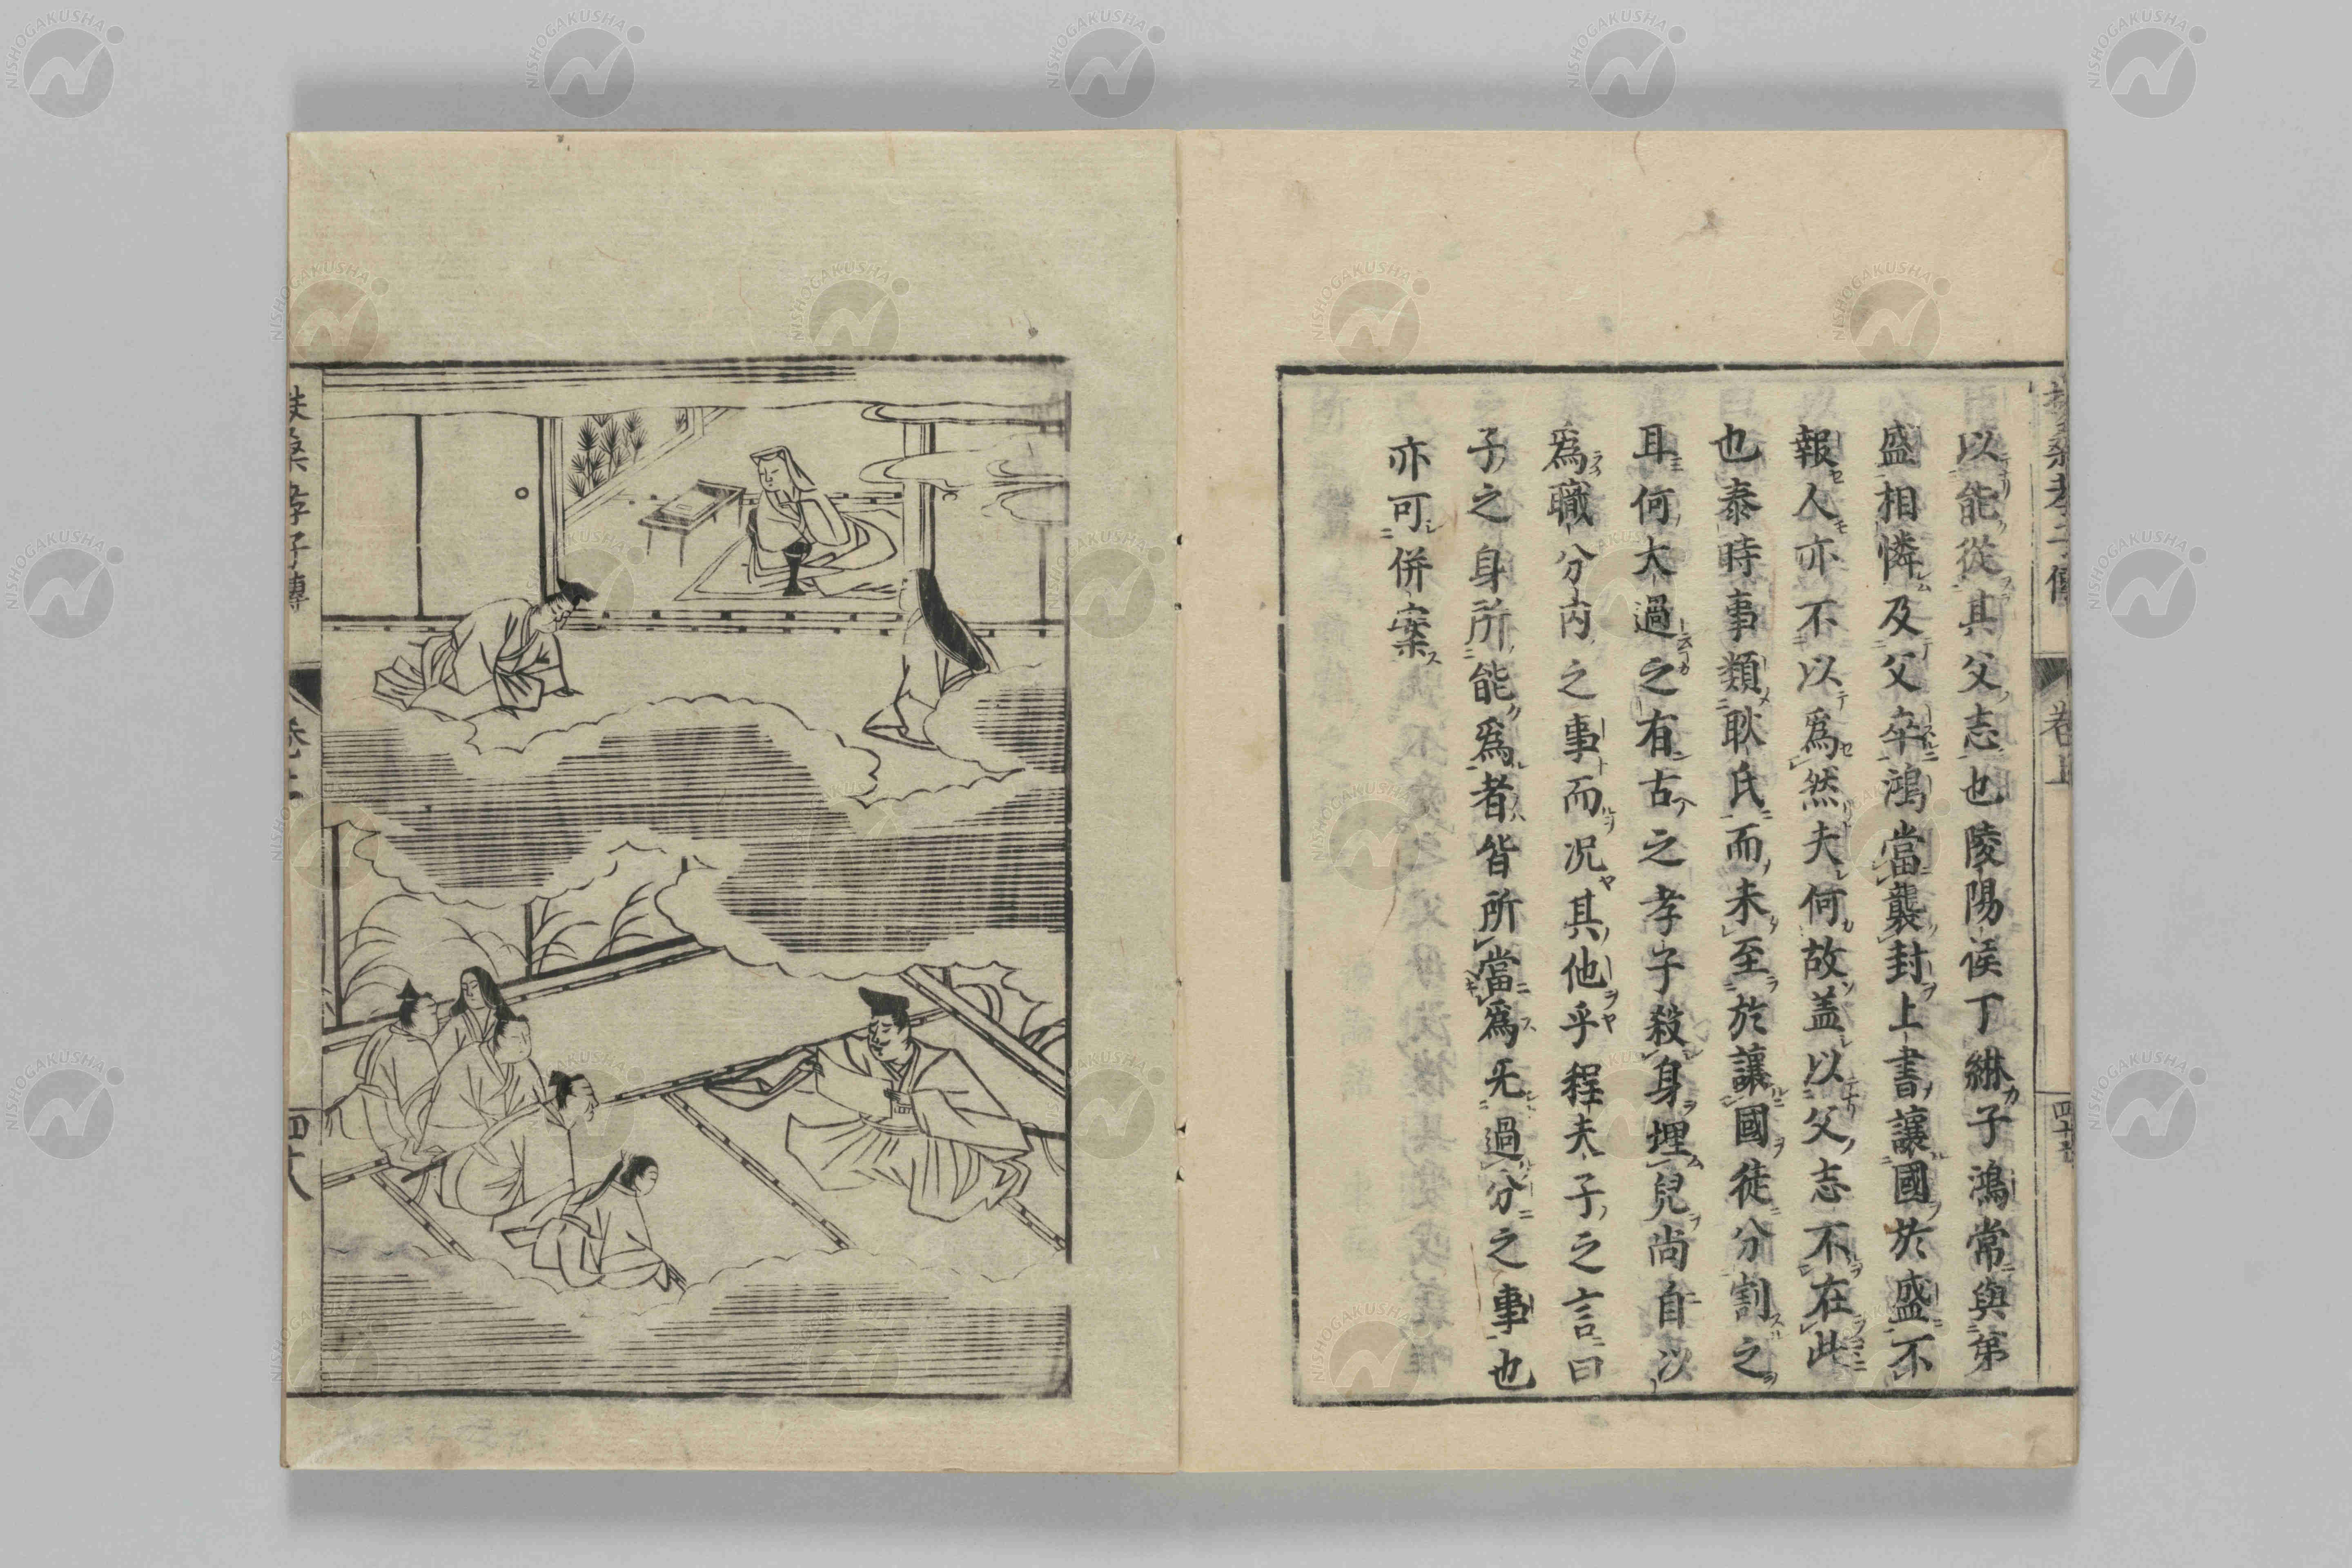 以能從其父志也陵陽侯丁綝子鴻常與第
盛相憐及父卒鴻當襲封上書讓國於盛不
報人亦不以爲然夫何故盖以父志不在此
也泰時事類耿氏而未至於讓國徒分割之
耳何大過之有古之孝子殺身埋兒尚自以
爲職分内之事而况其他乎程夫子之言曰
子之身所能爲者皆所當爲旡過分之事也
亦可併案
扶桑孝子傳
卷上
NISHOGAKUSHA